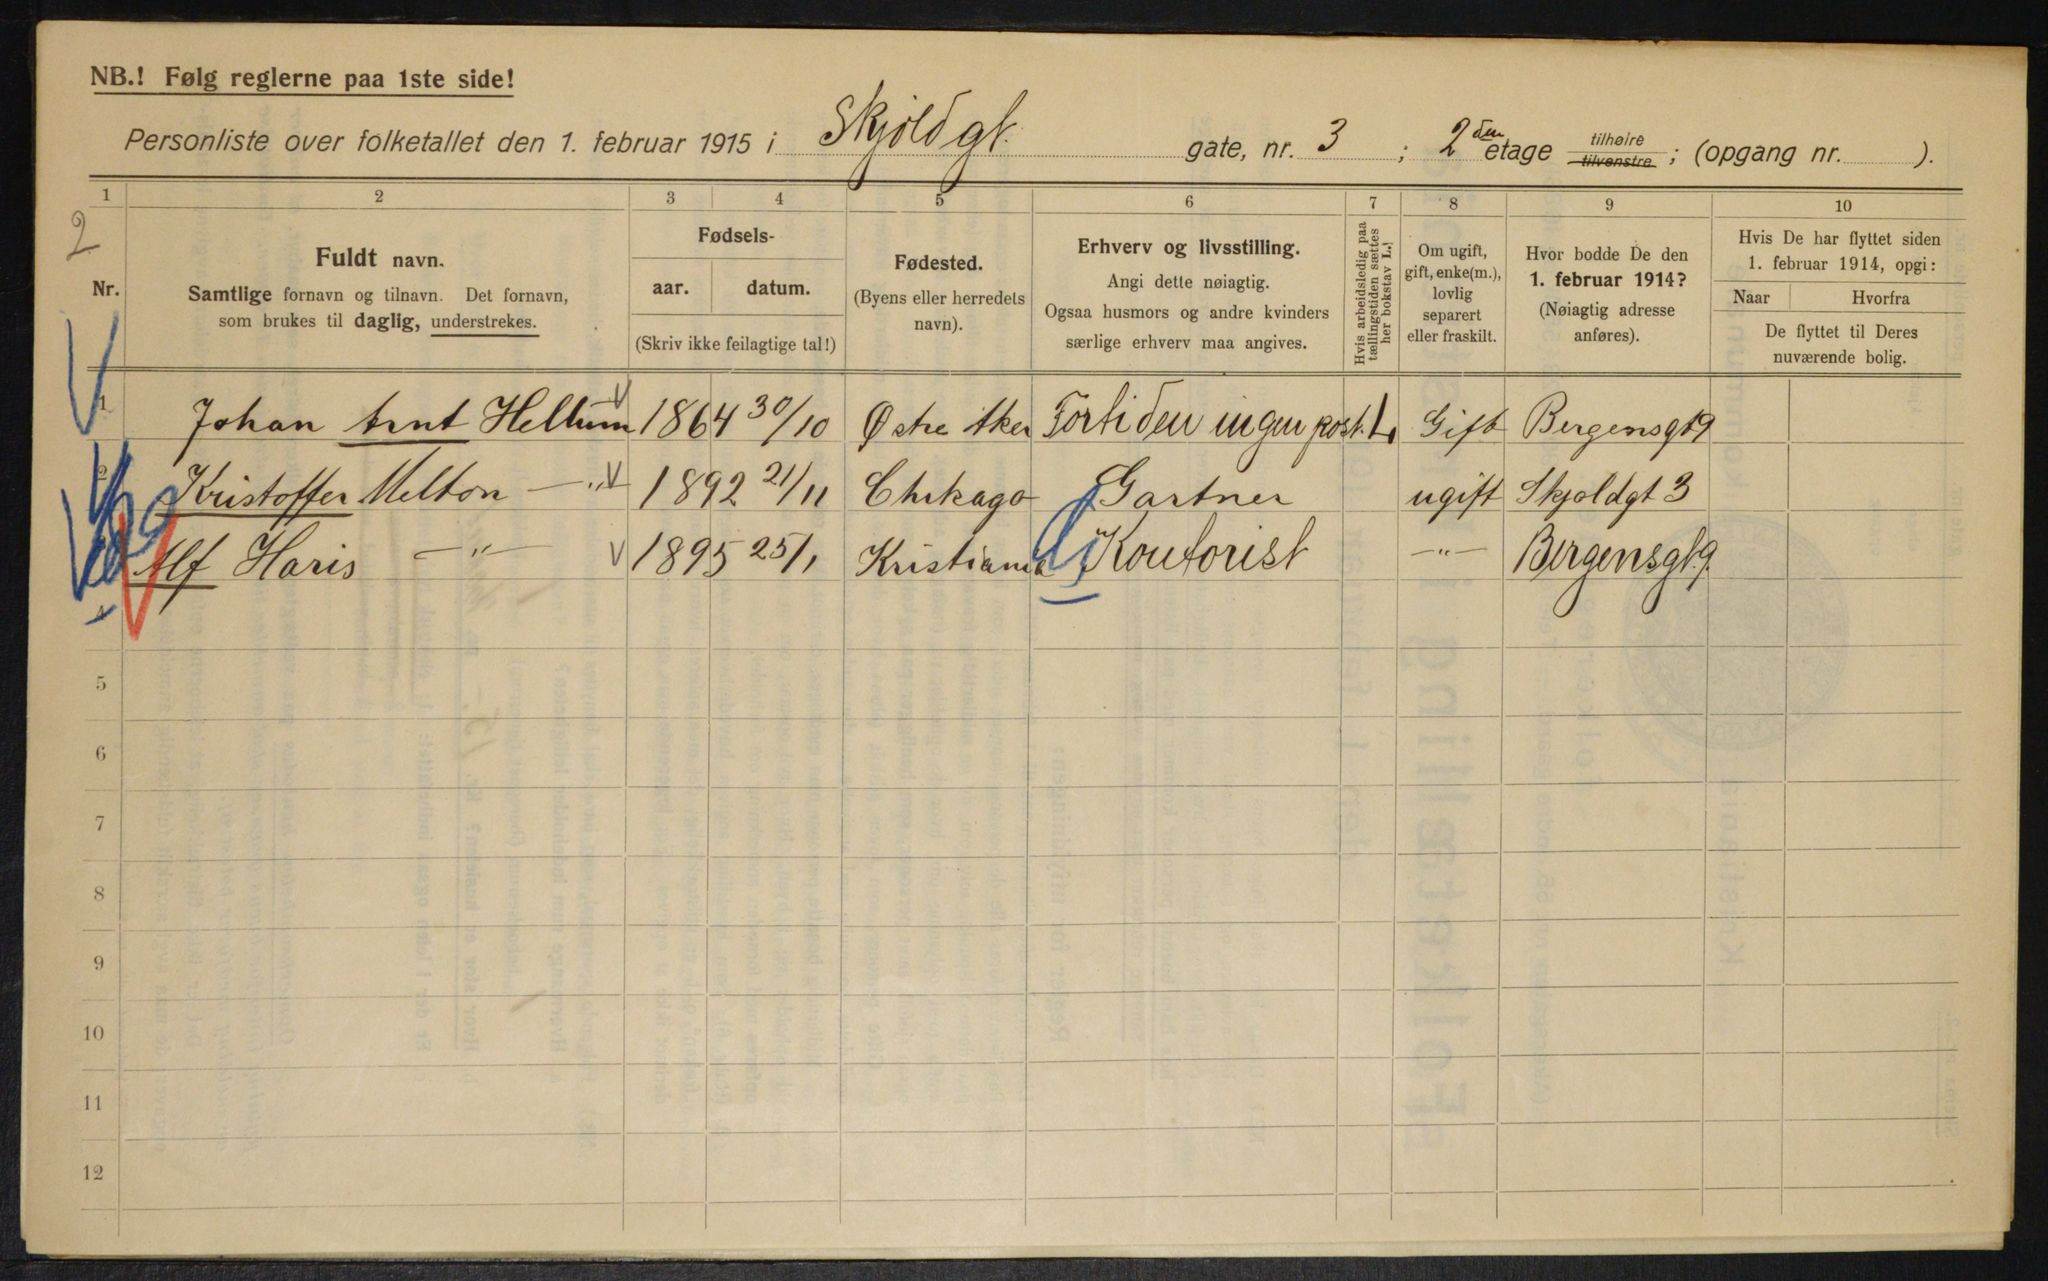 NB.! Følg reglerne paa 1ste side!
Personliste over folketallet den 1. februar 1915 i Skjoldgt. gate, nr. 3 ; 2den etage tilhøire tilvenstre ; (opgang nr. ).
1 2 3 4 5 6 7 8 9 10
2
Nr.
Fuldt navn.
Samtlige fornavn og tilnavn. Det fornavn,
som brukes til daglig, understrekes.
Fødsels-
aar. datum.
(Skriv ikke feilagtige tal!)
Fødested.
(Byens eller herredets
navn).
Erhverv og livsstilling.
Angi dette nøiagtig.
Ogsaa husmors og andre kvinders
særlige erhverv maa angives.
Hvis arbeidsledig paa
tællingstiden sættes
her bokstav L.!
Om ugift,
gift, enke(m.),
lovlig
separert
eller fraskilt.
Hvor bodde De den
1. februar 1914?
(Nøiagtig adresse
anføres).
Hvis De har flyttet siden
1. februar 1914, opgi:
Naar Hvorfra
De flyttet til Deres
nuværende bolig.
1 Johan Arnt Hellum 1864 30/10 Østre Aker Fortiden ingen post. L. Gift Bergensgt 9
2 Kristoffer Melton —„— 1892 21/11 Chikago Gartner ugift Skjoldgt 3
Alf Haris —„— 1895 25/1 Kristiania Kontorist —„— Bergensgt. 9.
4
5
6
7
8
9
10
11
12